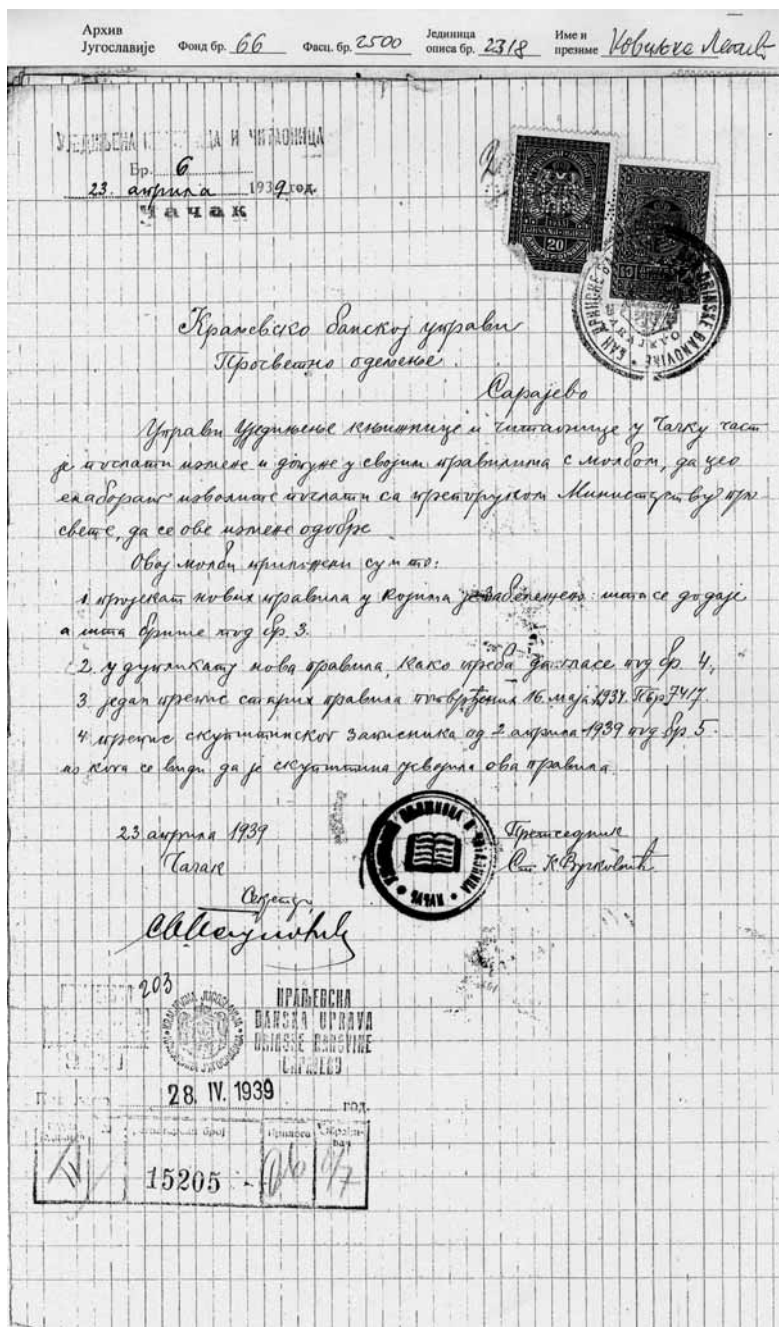 Архив
Југославије Фонд бр. 66 Фасц. бр. 2500 Јединица описа бр. 2318 Име и презиме
УЈЕДИЊЕНА И ЧИТАОНИЦА
Бр. 6
23. априла 1939 год.
Чачак
20
Краљевско банској управи
Просветно одељење.
Сарајево
Управи Уједињене књижнице и читаонице у Чачку част
је послати измене и допуне у својим правилима с молбом, да цео
елаборат изволите послати са препоруком Министарству про
свете, да се ове измене одобре
Овој молби приложени су и то:
1. пројекат нових правила у којима је забележено: шта се додаје
а шта брише под бр. 3.
2. у дупликату нова правила, како треба да гласе под бр 4,
3. један препис старих правила потврђених 16. маја 1934. Пбр 7417.
4. препис скупштинског записника од 2 априла 1939 под бр 5.
из кога се види да је скупштина усвојила ова правила.
23 априла 1939 Претседник
Чачак Ст. К. Вучковић
Секретар
203
КРАЉЕВСКА
БАНСКА УПРАВА
ДРИНСКЕ БАНОВИНЕ
САРАЈЕВО
28. IV. 1939 год.
15205